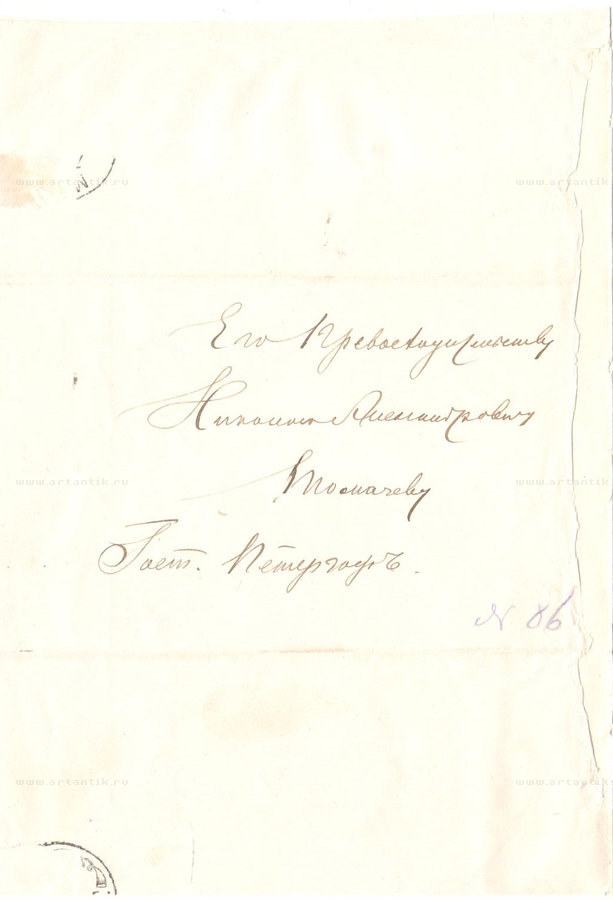 www.artantik.ru www.artantik.ru
Его Превосходительству
Николаю Александровичу
www.artantik.ru www.artantik.ru
Толмачеву
Гост. Петергофъ.
N 86
www.artantik.ru www.artantik.ru